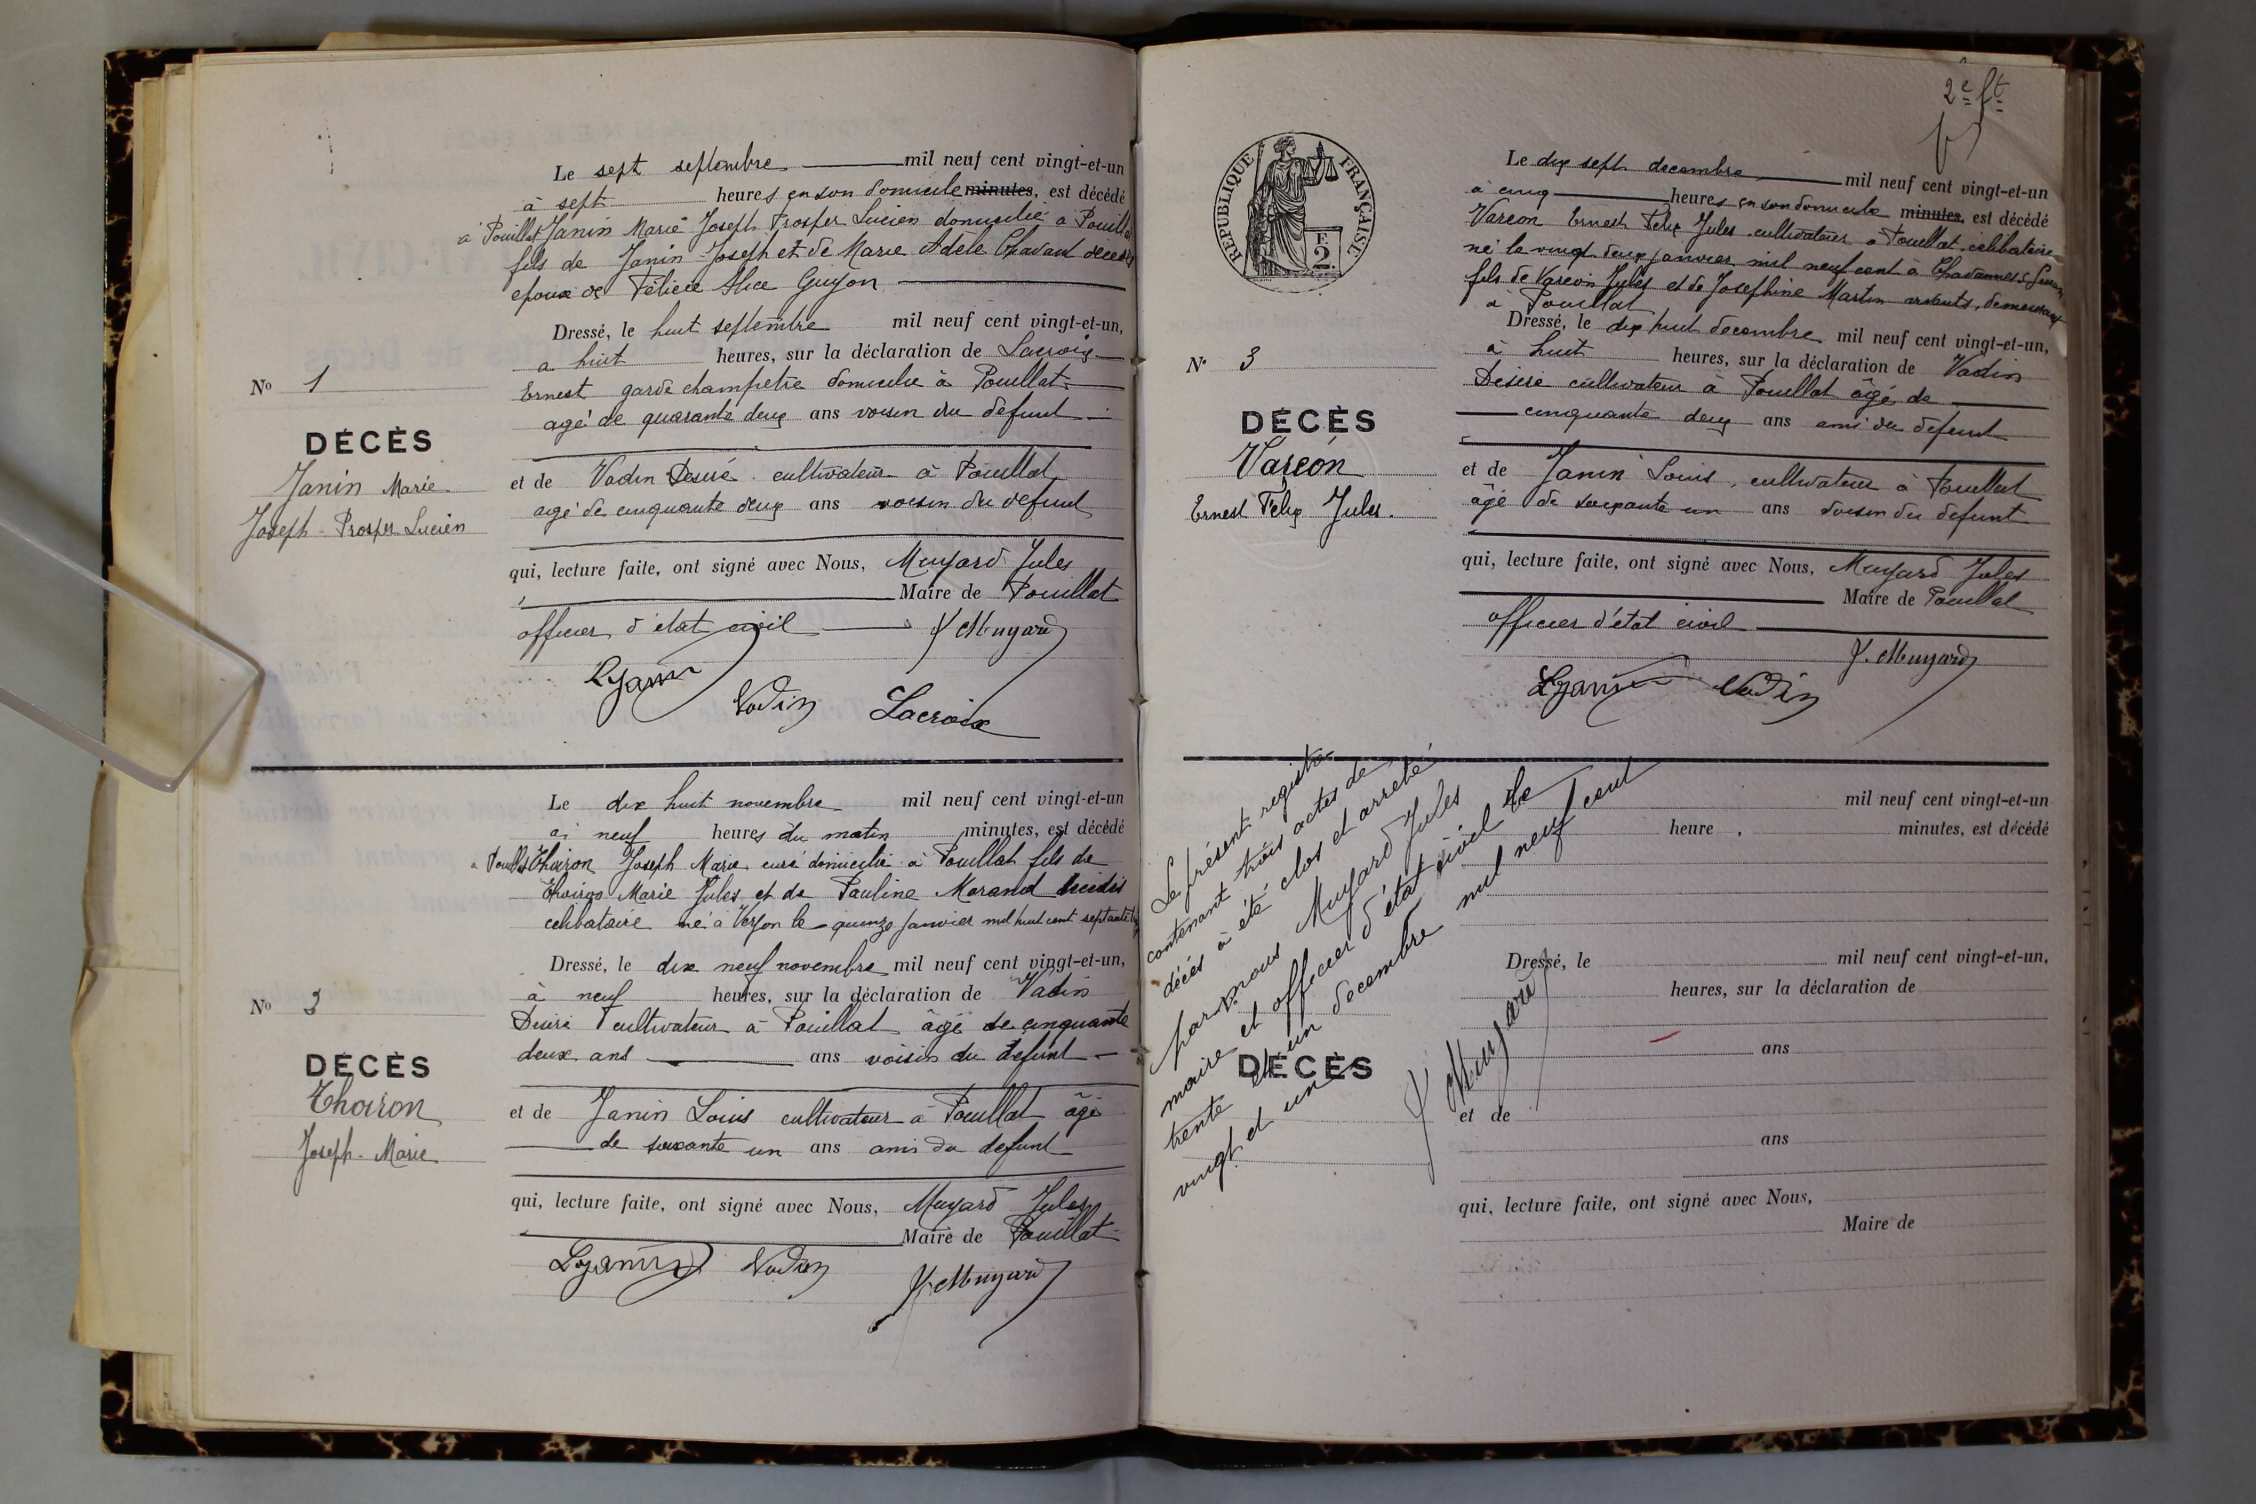 Le sept septembre mil neuf cent vingt-et-un
à sept heures en son domicile minutes, est décédé
à Pouillat Janin Marie Joseph Prosper Lucien domicilié à Pouillat
fils de Janin Joseph et de Marie Adèle Chavant décédés
epoux de Félicie Alice Guyon
Dressé, le huit septembre mil neuf cent vingt-et-un,
a huit heures, sur la déclaration de Lacroix
Ernest garde champetre domicilie à Pouillat
agé de quarante deux ans voisin du defunt
et de Vadin Desiré cultivateur à Pouillat
agé de cinquante deux ans voisin du defunt
qui, lecture faite, ont signé avec Nous, Muyard Jules
Maire de Pouillat
officier d'état civil J. Muyard
L Janin
Vadin Lacroix
No 1
DÉCÈS
Janin Marie
Joseph-Prosper Lucien
Le dix huit novembre mil neuf cent vingt-et-un
à neuf heures du matin minutes, est décédé
a Pouillat Thoiron Joseph Marie curé domicilié à Pouillat fils de
Marie Jules et de Pauline Morand décédés
celibataire né à Verjon le quinze janvier mil huit cent septante
Dressé, le dix neuf novembre mil neuf cent vingt-et-un,
à neuf heures, sur la déclaration de Vadin
Desiré cultivateur à Pouillat âgé de cinquante
deux ans ans voisin du defunt
et de Janin Louis cultivateur à Pouillat âgé
de soixante un ans ami du defunt
qui, lecture faite, ont signé avec Nous, Muyard Jules
Maire de Pouillat
L Janin Vadin J. Muyard
No 3
DÉCÈS
Thoiron
Joseph-Marie
2e ft
RÉPUBLIQUE FRANÇAISE
F
2
Le dix sept decembre mil neuf cent vingt-et-un
à cinq heures en son domicile minutes, est décédé
Vareon Ernest Felix Jules cultivateur à Pouillat célibataire
né le vingt deux janvier mil neuf cent à Chavannes s. Suran
fils de Vareon Jules et de Josephine Martin vivants, demeurant
a Pouillat
Dressé, le dix huit decembre mil neuf cent vingt-et-un,
à huit heures, sur la déclaration de Vadin
Desiré cultivateur à Pouillat âgé de
cinquante deux ans ami du defunt
et de Janin Louis, cultivateur à Pouillat
âgé de soixante un ans voisin du defunt
qui, lecture faite, ont signé avec Nous, Muyard Jules
Maire de Pouillat
officier d'état civil
J. Muyard
L Janin Vadin
No 3
DÉCÈS
Vareon
Ernest Felix Jules.
Le présent registre
contenant trois actes de
décés à été clos et arreté
par nous Muyard Jules
maire et officier d'état civil le
trente et un decembre mil neuf cent
vingt et un
J. Muyard
DÉCÈS
mil neuf cent vingt-et-un
heure minutes, est décédé
Dressé, le mil neuf cent vingt-et-un,
heures, sur la déclaration de
ans
et de
ans
qui, lecture faite, ont signé avec Nous,
Maire de